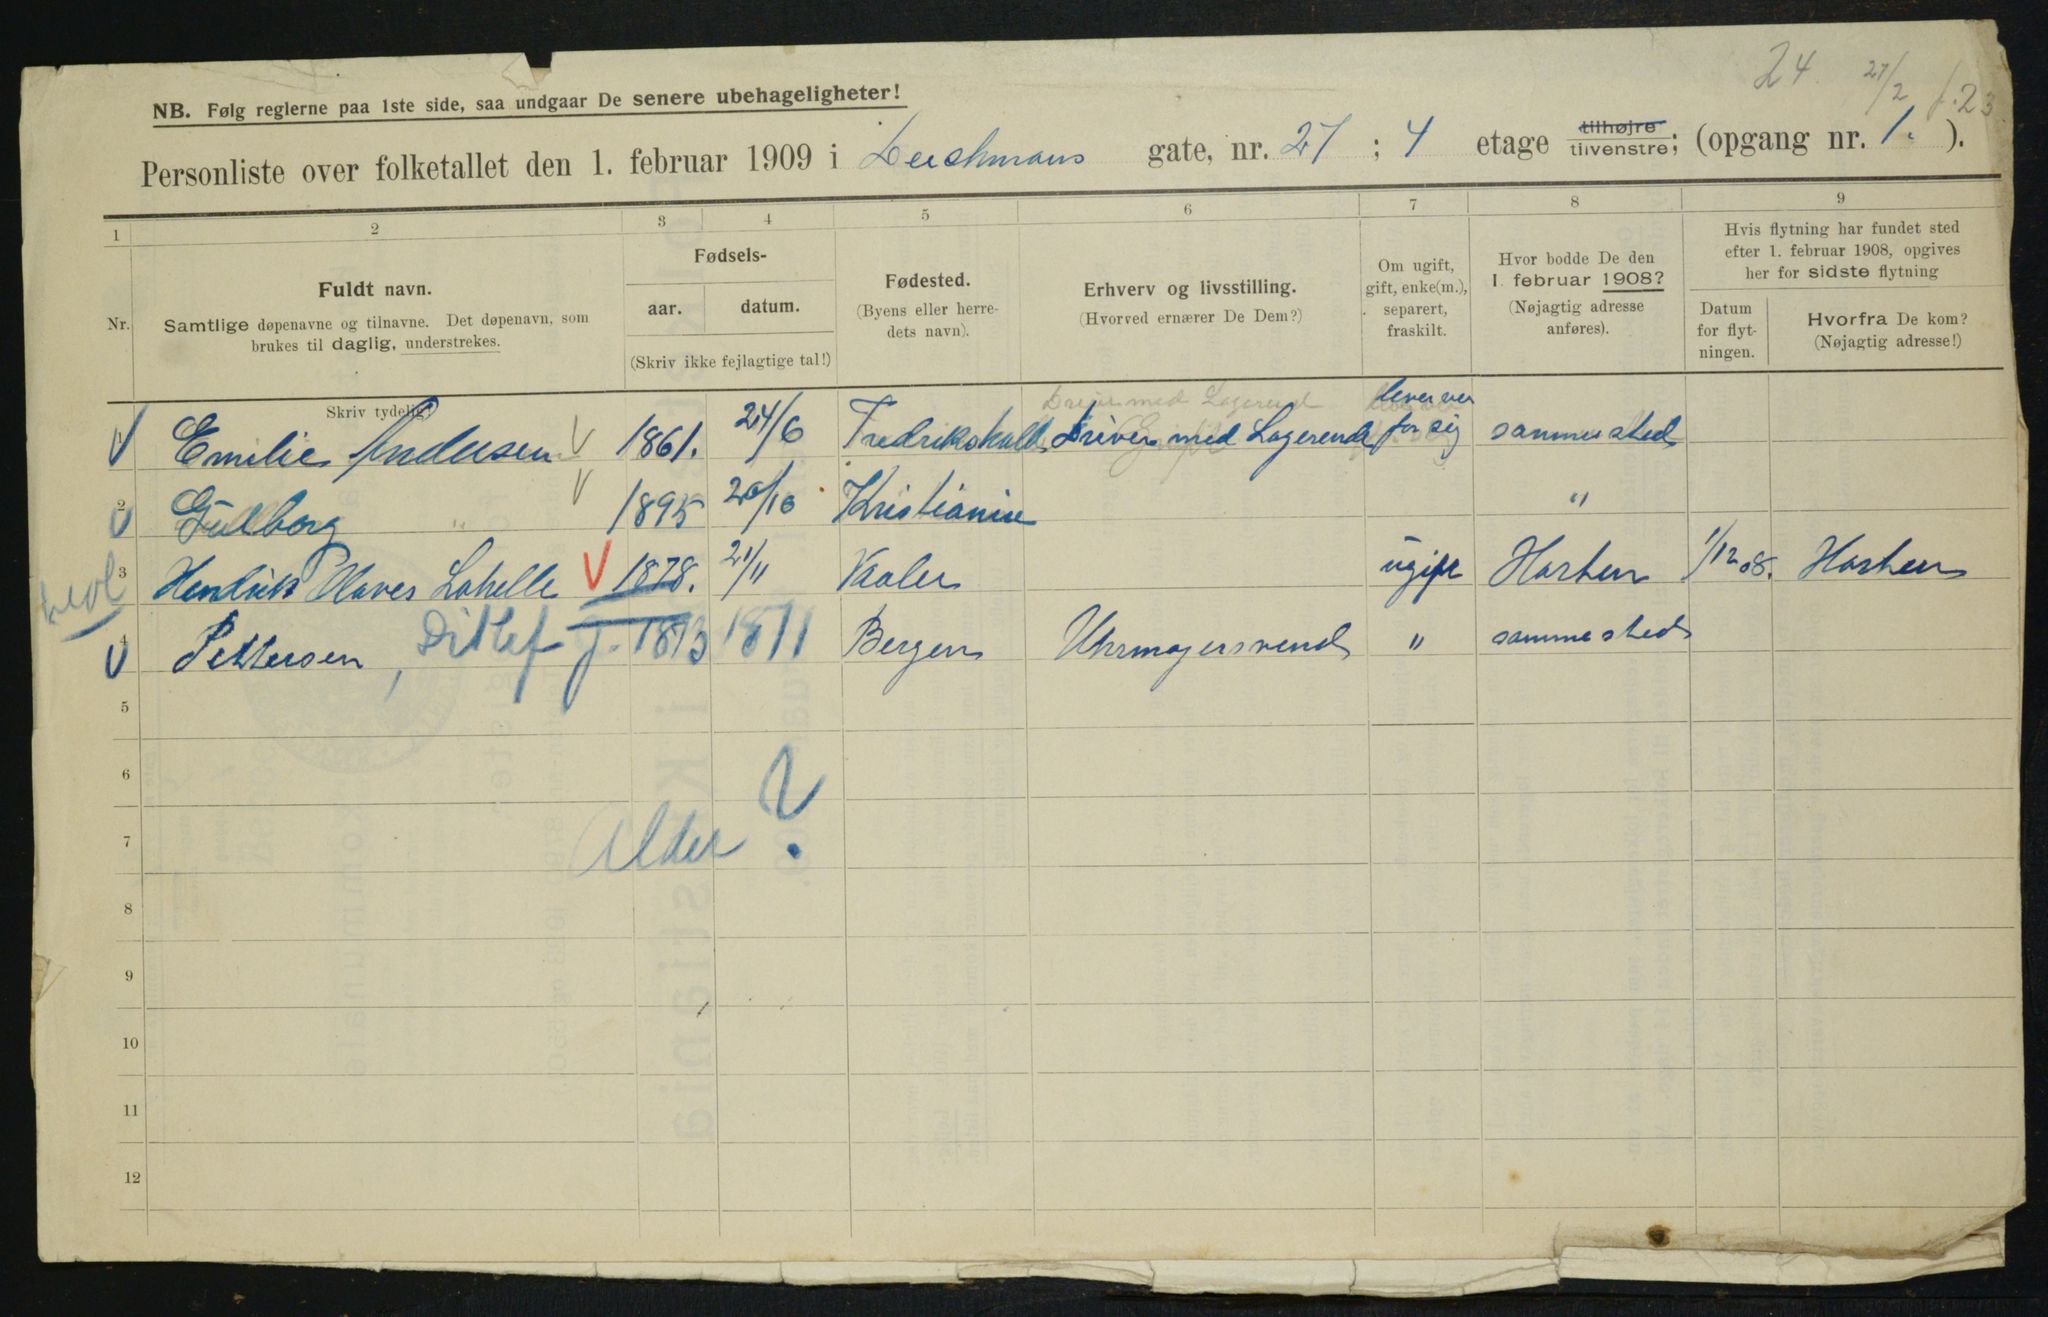 24 27/2 f. 23
NB. Følg reglerne paa 1ste side, saa undgaar De senere ubehageligheter!
Personliste over folketallet den 1. februar 1909 i Deichmans gate, nr. 27 ; 4 etage tilhøjre tilvenstre; (opgang nr. 1. ).
1 2 3 4 5 6 7 8 9
Nr.
Fuldt navn.
Samtlige døpenavne og tilnavne. Det døpenavn, som
brukes til daglig, understrekes.
Skriv tydelig!
Fødsels-
aar. datum.
(Skriv ikke fejlagtige tal!)
Fødested.
(Byens eller herre-
dets navn).
Erhverv og livsstilling.
(Hvorved ernærer De Dem?)
Om ugift,
gift, enke(m.),
separert,
fraskilt.
Hvor bodde De den
1. februar 1908?
(Nøjagtig adresse
anføres).
Hvis flytning har fundet sted
efter 1. februar 1908, opgives
her for sidste flytning
Datum
for flyt-
ningen.
Hvorfra De kom?
(Nøjagtig adresse!)
1 Emilie Andersen 1861. 24/6 Fredrikshald Driver med Logerende lever ver for sig samme sted
2 Gulborg " 1895 20/10 Kristiania "
3 Hendrik Lakelle 1878. 21/11 Kaaler ugift Horten 1/12 08. Horten
4 Pettersen, Ditlef J. 1873 1871 Bergen Uhrmagersvend " samme sted
5
6
7 Alder ?
8
9
10
11
12